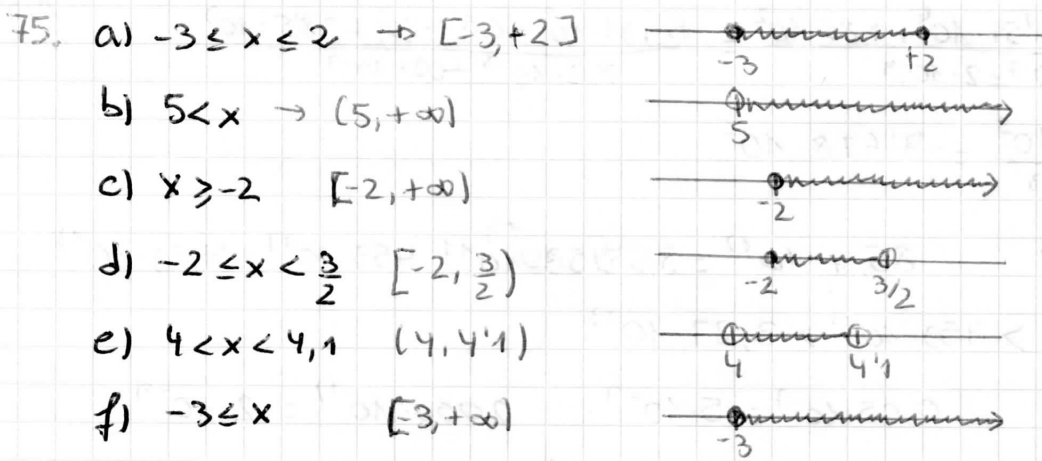 75. a) -3 ≤ x ≤ 2 → [-3, +2] -3 +2
b) 5 < x → (5, +∞) 5
c) x ≥ -2 [-2, +∞) -2
d) -2 ≤ x < 3/2 [-2, 3/2) -2 3/2
e) 4 < x < 4,1 (4, 4'1) 4 4'1
f) -3 ≤ x [-3, +∞) -3